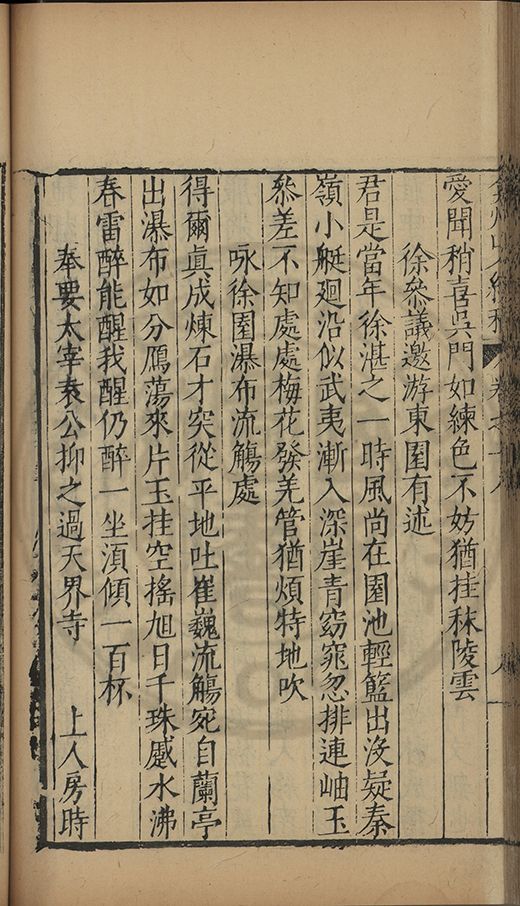 愛聞稍喜吳門如練色不妨猶挂秣陵雲
徐叅議邀游東園有述
君是當年徐湛之一時風尚在園池輕籃出沒疑秦
嶺小艇廻沿似武夷漸入深崖青窈窕忽排連岫玉
叅差不知處處梅花發羌管猶煩特地吹
咏徐園瀑布流觴處
得爾眞成煉石才突從平地吐崔巍流觴宛自蘭亭
出瀑布如分鴈蕩來片玉挂空搖旭日千珠蹙水沸
春雷醉能醒我醒仍醉一坐湏傾一百杯
奉要太宰袁公抑之過天界寺 上人房時